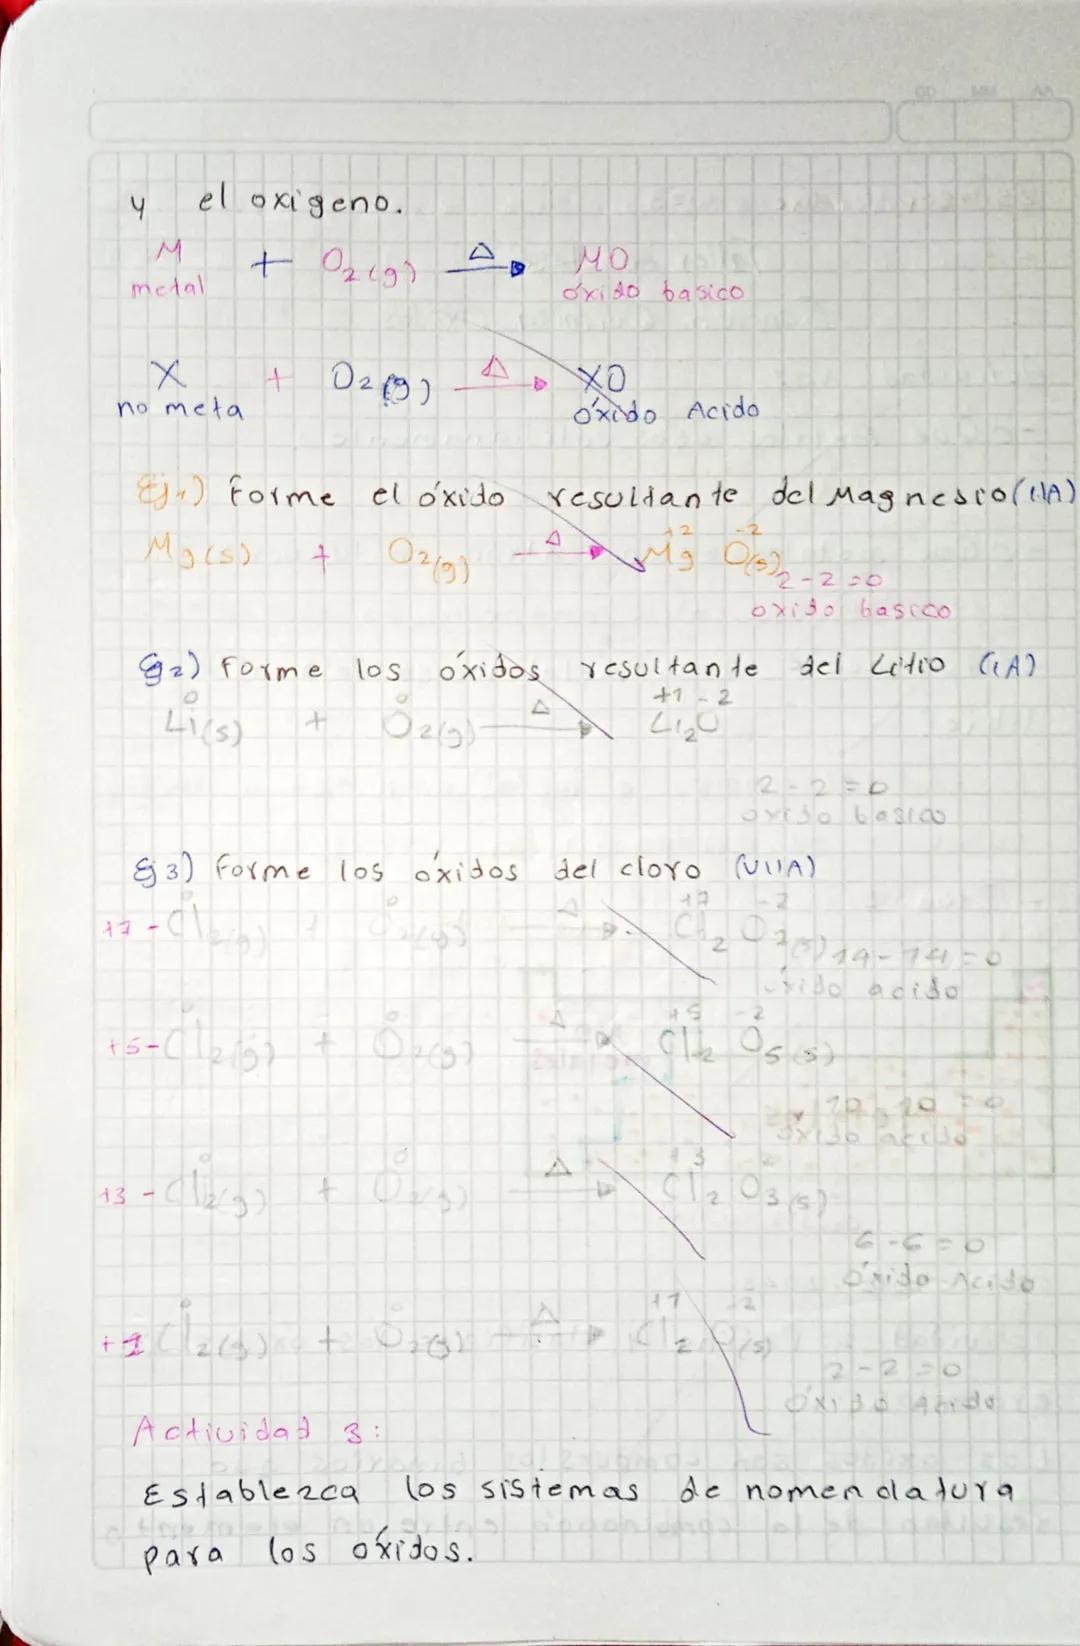 DD MM AA
y el oxigeno.
M + O2(g) Δ MO
metal óxido basico
X + O2(g) Δ XO
no meta óxido Acido
Ej.1) Forme el óxido resultante del Magnesio (IIA)
+2 -2
Mg(s) + O2(g) Δ Mg O(s)
2-2=0
oxido basico
Ej2) Forme los óxidos resultante del Litio (IA)
0 0 +1 -2
Li(s) + O2(g) Δ Li2O
2-2=0
oxido basico
Ej3) Forme los óxidos del cloro (VIIA)
0 0 +7 -2
+7 - Cl2(g) + O2(g) Δ Cl2 O7(s)
14-14=0
óxido acido
0 0 +5 -2
+5 - Cl2(g) + O2(g) Δ Cl2 O5(s)
10-10=0
óxido acido
0 0 +3 -2
+3 - Cl2(g) + O2(g) Δ Cl2 O3(s)
6-6=0
óxido Acido
0 0 +1 -2
+1 Cl2(g) + O2(g) Δ Cl2 O(s)
2-2=0
óxido Acido
Actividad 3:
Establezca los sistemas de nomenclatura
para los óxidos.